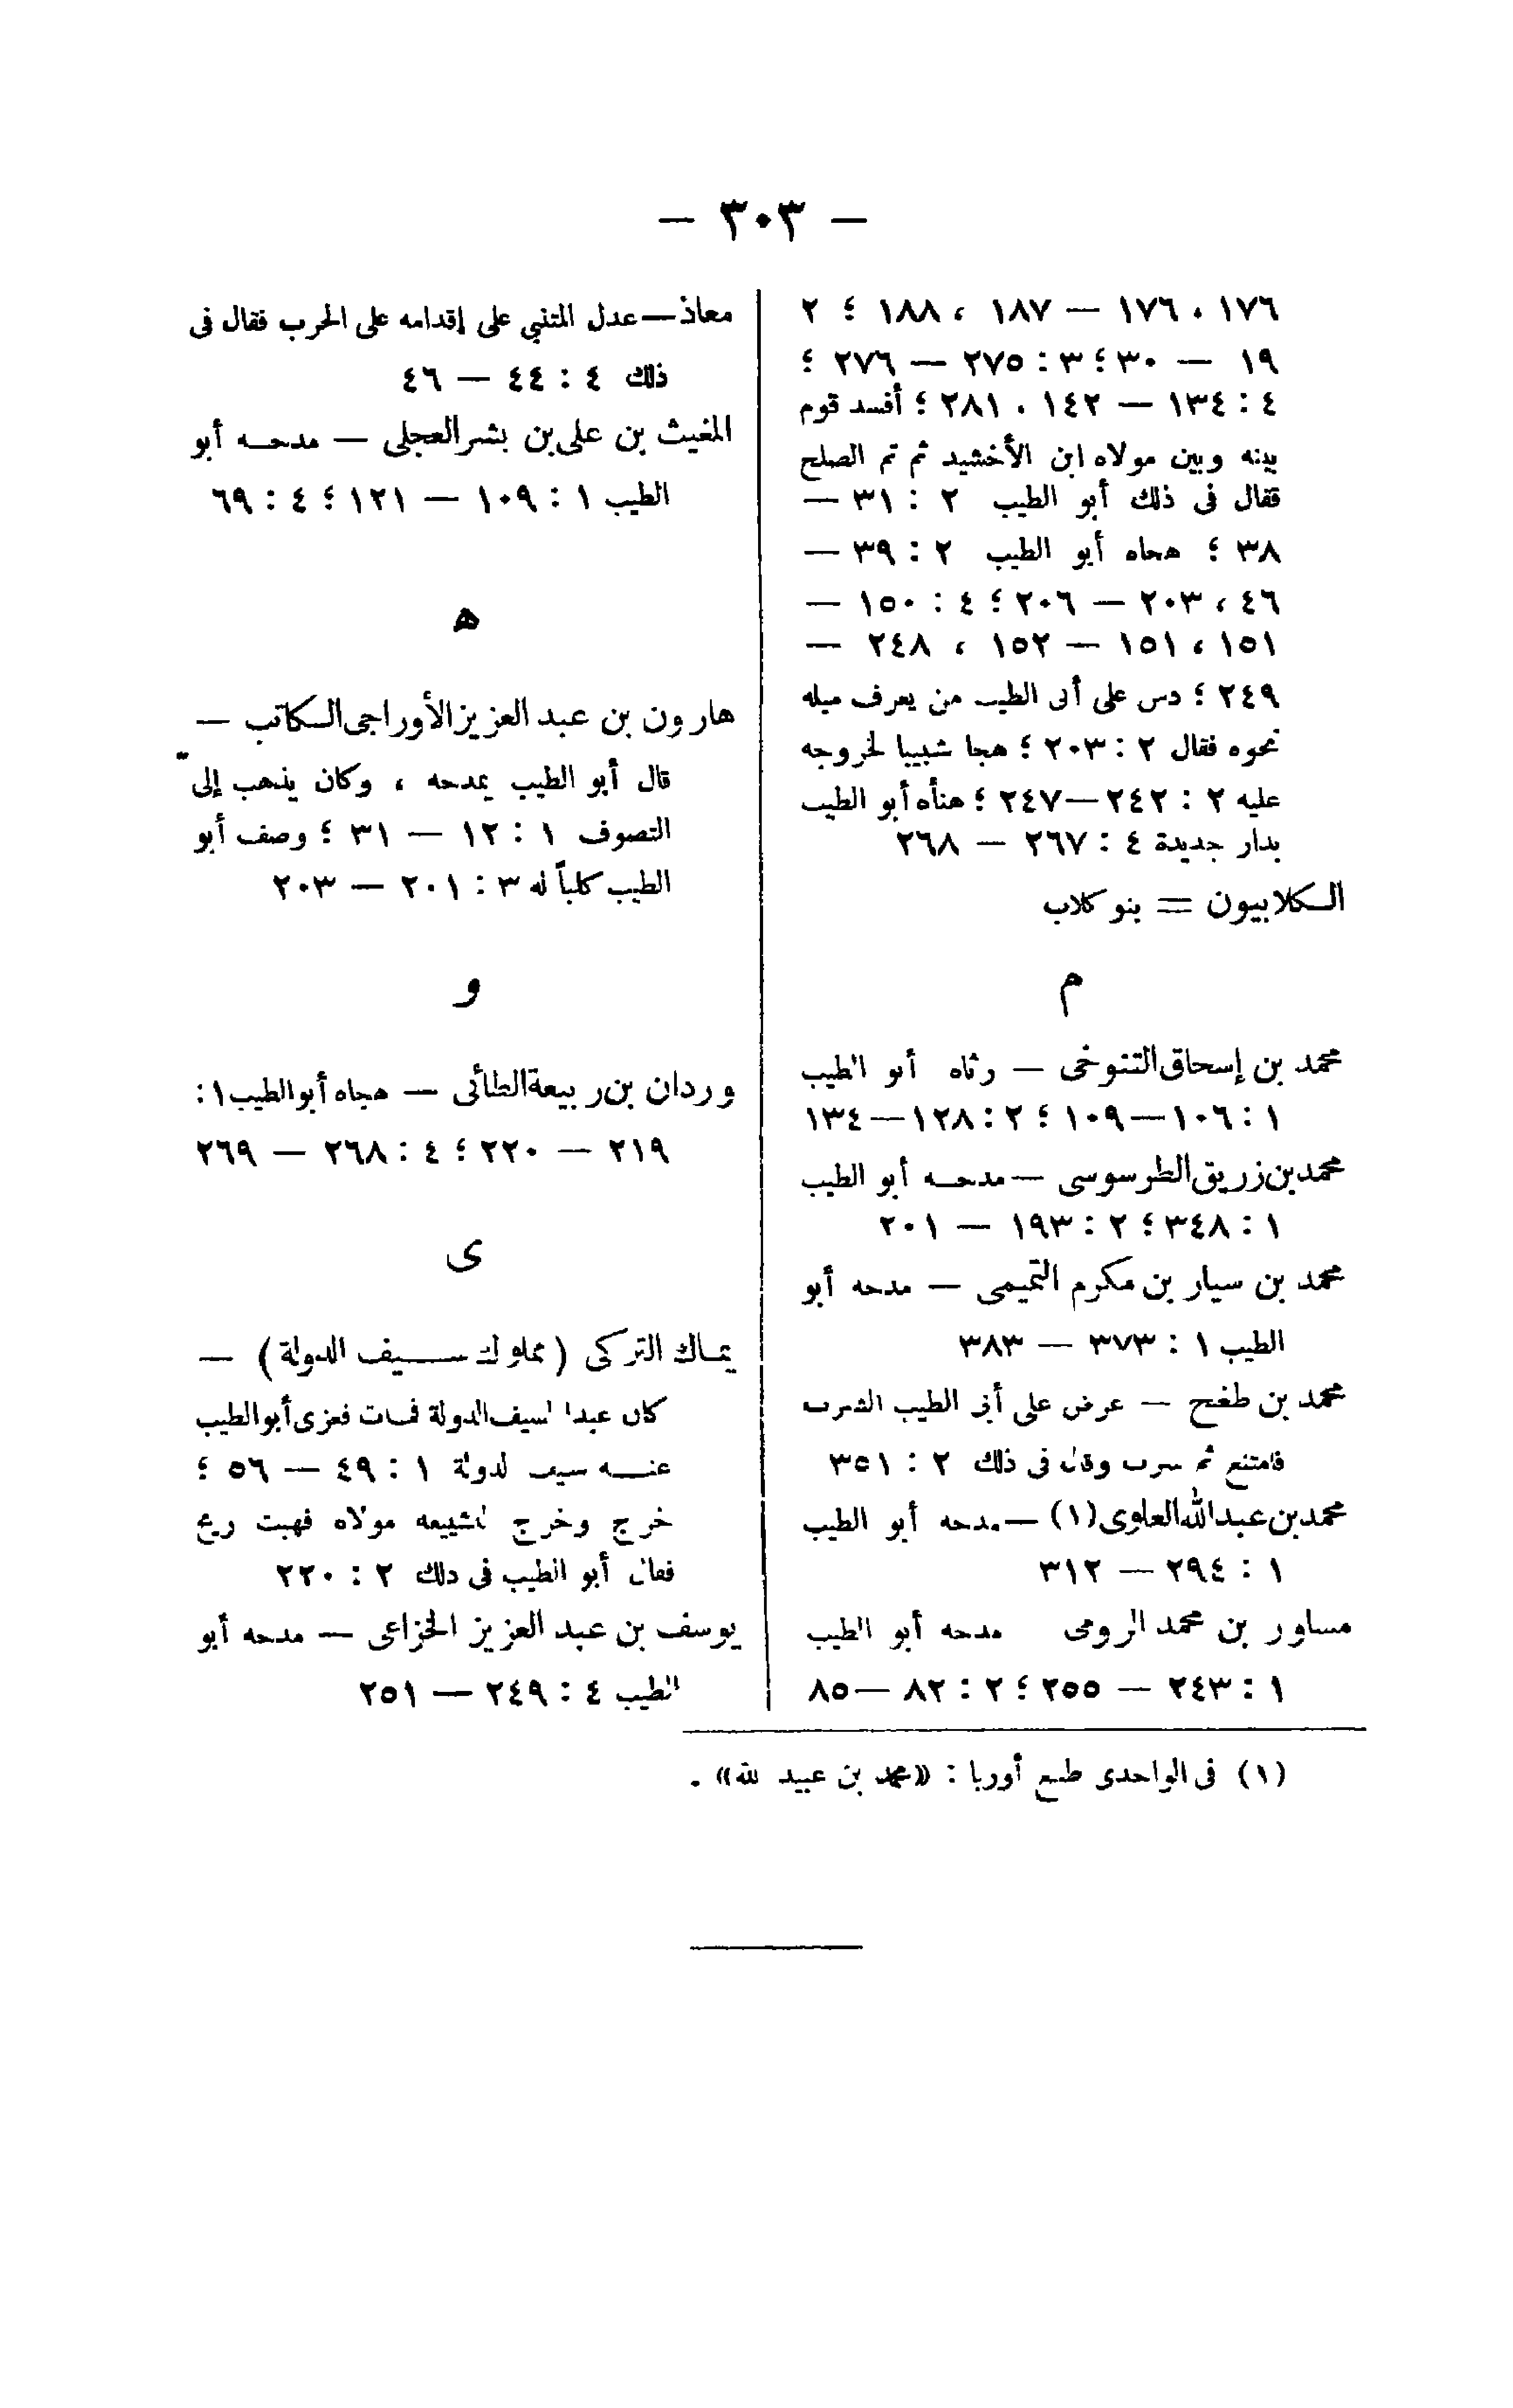 — ٣٠٣ —
١٧٦ ، ١٧٦ — ١٨٧ ، ١٨٨ ؛ ٢
١٩ — ٣٠ ؛ ٣ : ٢٧٥ — ٢٧٦ ؛
٤ : ١٣٤ — ١٤٢ ، ٢٨١ ؛ أفسد قوم
بينه وبين مولاه ابن الأخشيد ثم تم الصلح
فقال فى ذلك أبو الطيب ٢ : ٣١ —
٣٨ ؛ هجاه أبو الطيب ٢ : ٣٩ —
٤٦ ، ٢٠٣ — ٢٠٦ ؛ ٤ : ١٥٠ —
١٥١ ، ١٥١ — ١٥٢ ، ٢٤٨ —
٢٤٩ ؛ دس على أبى الطيب من يعرف ميله
نحوه فقال ٢ : ٢٠٣ ؛ هجا شبيبا لخروجه
عليه ٢ : ٢٤٢—٢٤٧ ؛ هنأه أبو الطيب
بدار جديدة ٤ : ٢٦٧ — ٢٦٨
الكلابيون = بنو كلاب
م
محمد بن إسحاق التنوخى — رثاه أبو الطيب
١ : ١٠٦—١٠٩ ؛ ٢ : ١٢٨—١٣٤
محمد بن زريق الطرسوسى — مدحه أبو الطيب
١ : ٣٤٨ ؛ ٢ : ١٩٣ — ٢٠١
محمد بن سيار بن مكرم التميمى — مدحه أبو
الطيب ١ : ٣٧٣ — ٣٨٣
محمد بن طغج — عرض على أبى الطيب الشرب
فامتنع ثم شرب وقال فى ذلك ٢ : ٣٥١
محمد بن عبد الله العلوى (١) — مدحه أبو الطيب
١ : ٢٩٤ — ٣١٢
مساور بن محمد الرومى مدحه أبو الطيب
١ : ٢٤٣ — ٢٥٥ ؛ ٢ : ٨٢ — ٨٥
معاذ — عدل المتنبي على إقدامه على الحرب فقال فى
ذلك ٤ : ٤٤ — ٤٦
المغيث بن على بن بشر العجلى — مدحه أبو
الطيب ١ : ١٠٩ — ١٢١ ؛ ٤ : ٦٩
ه
هارون بن عبد العزيز الأوراجى الكاتب —
قال أبو الطيب يمدحه ، وكان يذهب إلى
التصوف ١ : ١٢ — ٣١ ؛ وصف أبو
الطيب كلباً له ٣ : ٢٠١ — ٢٠٣
و
وردان بن ربيعة الطائى — هجاه أبو الطيب ١ :
٢١٩ — ٢٢٠ ؛ ٤ : ٢٦٨ — ٢٦٩
ى
يماك التركى ( مملوك سيف الدولة ) —
كان عبدا لسيف الدولة فمات فعزى أبو الطيب
عنه سيف الدولة ١ : ٤٩ — ٥٦ ؛
خرج وخرج لتشييعه مولاه فهبت ريح
فقال أبو الطيب فى ذلك ٢ : ٢٢٠
يوسف بن عبد العزيز الخزاعى — مدحه أبو
الطيب ٤ : ٢٤٩ — ٢٥١
(١) فى الواحدى طبع أوربا : «محمد بن عبيد لله» .